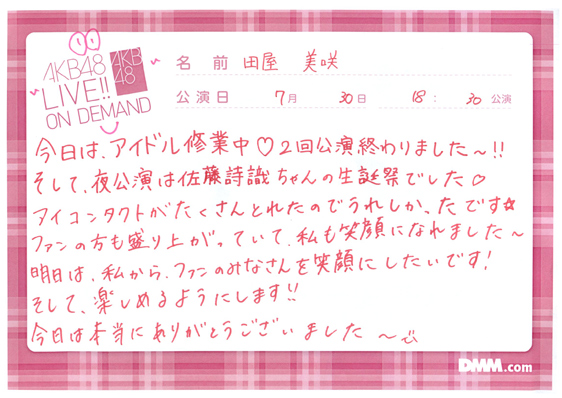 AKB48
LIVE!!
ON DEMAND
AKB
48
名前 田屋 美咲
公演日 7月 30日 18:30 公演
今日は、アイドル修業中♡2回公演終わりました〜!!
そして、夜公演は佐藤詩識ちゃんの生誕祭でした♡
アイコンタクトがたくさんとれたのでうれしかったです☆
ファンの方も盛り上がっていて、私も笑顔になれました〜
明日は、私から、ファンのみなさんを笑顔にしたいです!
そして、楽しめるようにします!!
今日は本当にありがとうございました 〜
DMM.com